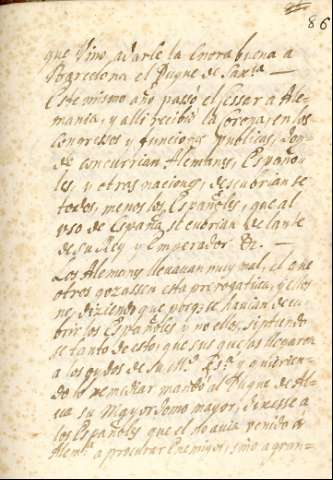 86
que Vino a darle la enora buena a
Barcelona el Duque de Saxa —
Este mismo año passò el Cesar a Ale-
mania, y alli recibiò la Corona, en los
Congressos y funciones publicas, don-
de concurrian Alemanes, Españo-
les, y otras naciones, descubrianse
todos, menos los Españoles, que al
uso de España se cubrian delante
de su Rey y Emperador &c. —
Los Alemanes lleuauan muy mal, el que
otros gozassen esta prerogatiua, y ellos
no, diziendo que porq; se hauian de cu-
brir los Españoles y no ellos, sintiendo
se tanto de esto, que sus quexas llegaron
a los oydos de su Mᵈ. y querien-
dolo remediar mandò al Duque de Al-
ua su Mayordomo mayor, dixesse a
los Españoles que el no auia venido a
Alemᵃ a procurar Enemigos, sino a gran-